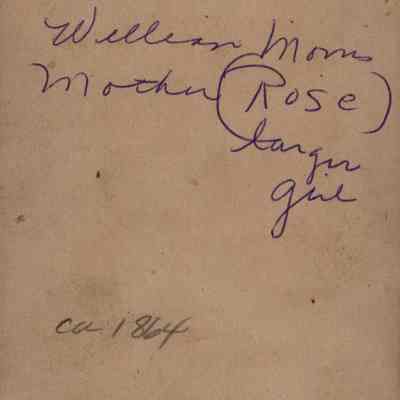 William Morris
Mother (Rose)
larger
girl
ca 1864